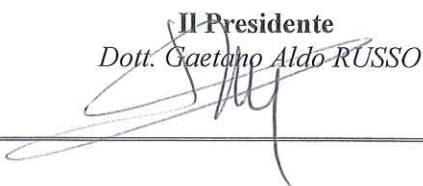 Il Presidente
Dott. Gaetano Aldo RUSSO